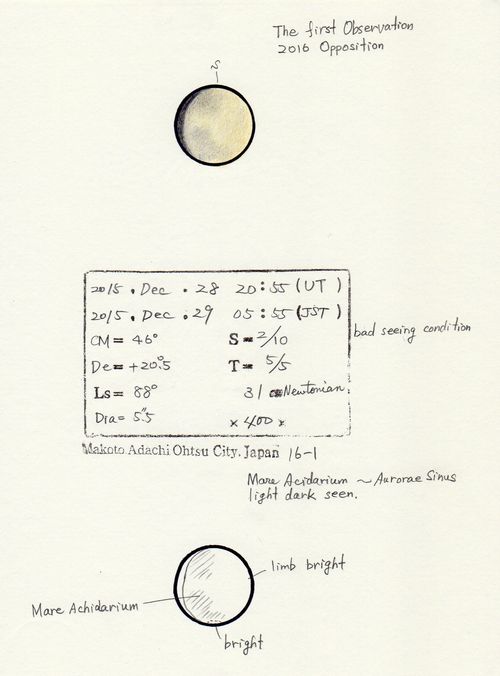 The first Observation
2016 Opposition
S
2015 . Dec . 28 20:55 (UT)
2015 . Dec . 29 05:55 (JST)
CM = 46° S = 2/10
De = +20°.5 T = 5/5
Ls = 88° 31 cm Newtonian
Dia = 5".5 × 400 ×
bad seeing condition
Makoto Adachi Ohtsu City. Japan 16-1
Mare Acidarium ~ Aurorae Sinus
light dark seen.
limb bright
Mare Achidarium
bright